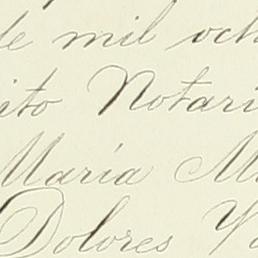 de mil och
ito Notari
María M
Dolores Y